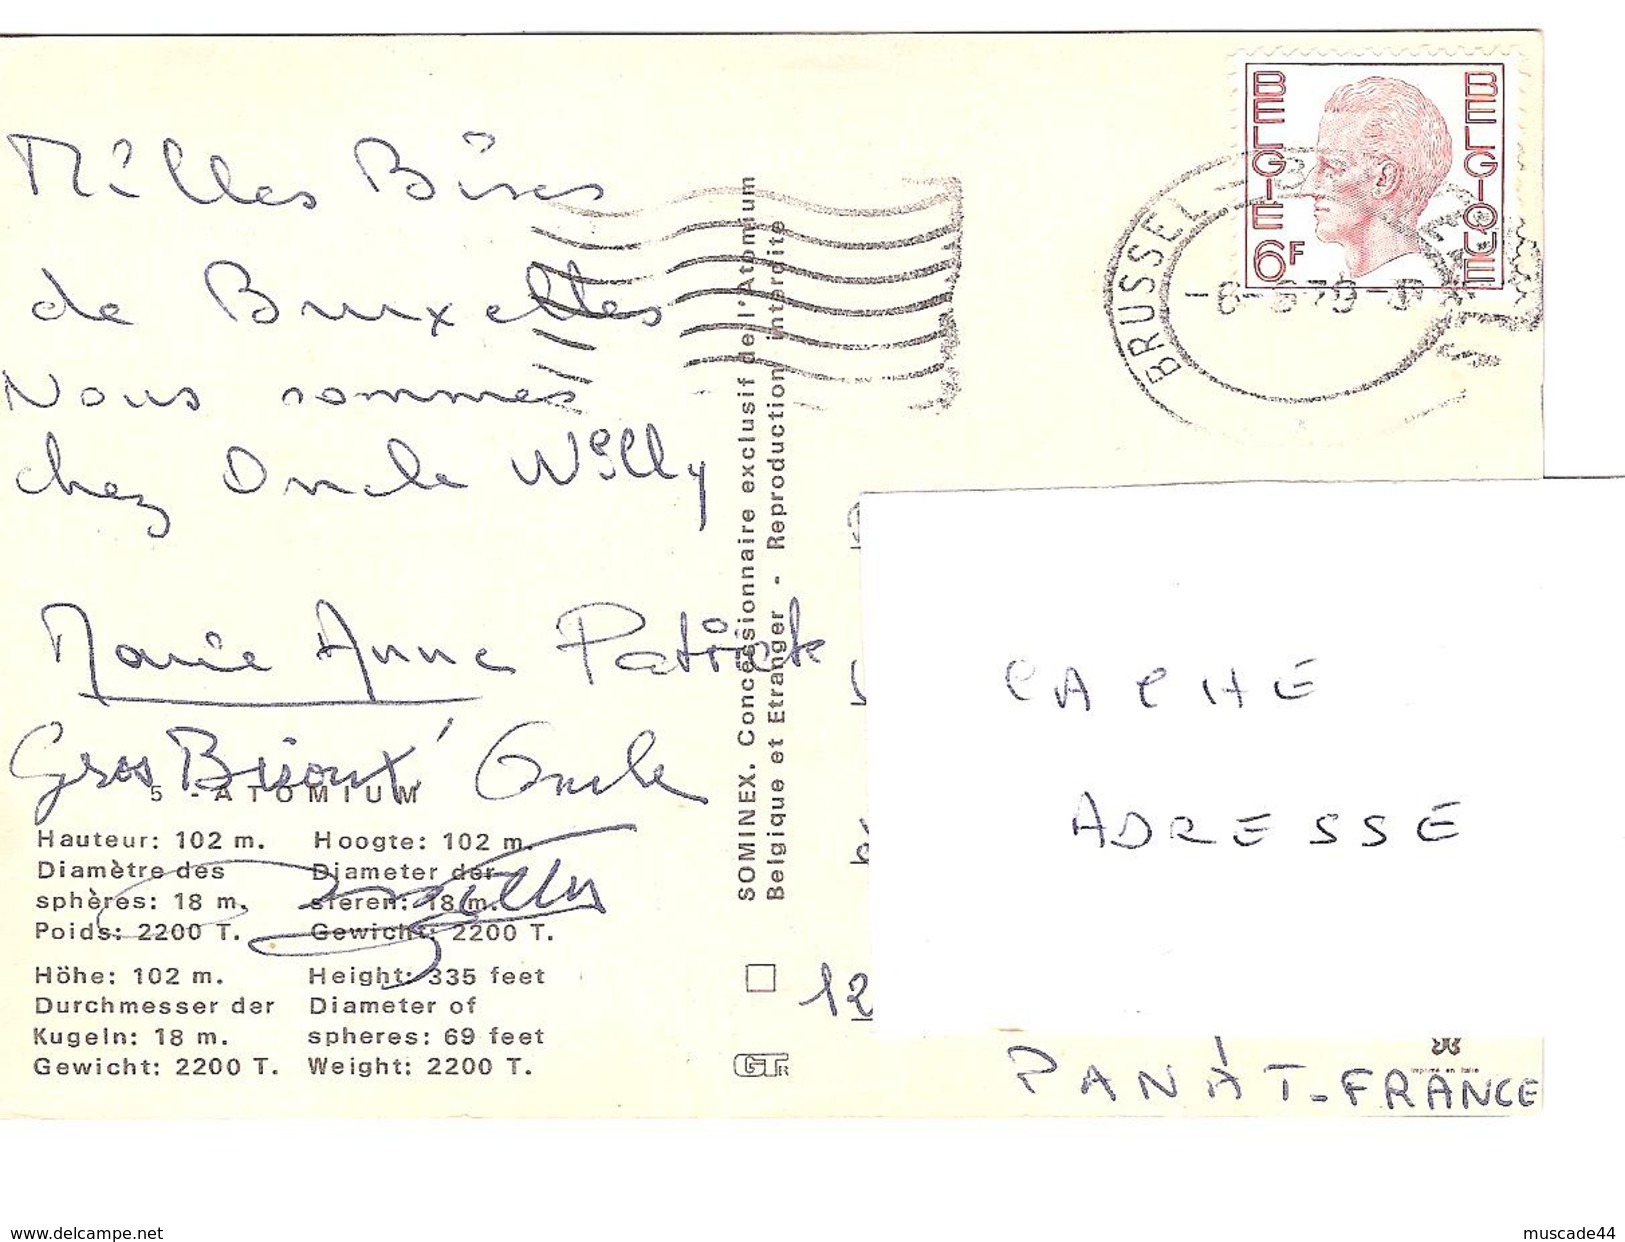 Milles Bises
de Bruxelles
Nous sommes
chez Oncle Willy
Marie Anne Patrick
Gros Bisoux Oncle
Willy
5 - ATOMIUM
Hauteur: 102 m.
Diamètre des
sphères: 18 m.
Poids: 2200 T.
Hoogte: 102 m.
Diameter der
sferen: 18 m.
Gewicht: 2200 T.
Höhe: 102 m.
Durchmesser der
Kugeln: 18 m.
Gewicht: 2200 T.
Height: 335 feet
Diameter of
spheres: 69 feet
Weight: 2200 T.
SOMINEX. Concessionnaire exclusif de l'Atomium
Belgique et Etranger - Reproduction interdite
GTR
BELGIE
BELGIQUE
6F
BRUSSEL
CACHE
ADRESSE
12
PANAT-FRANCE
Imprimé en Italie
www.delcampe.net
muscade44